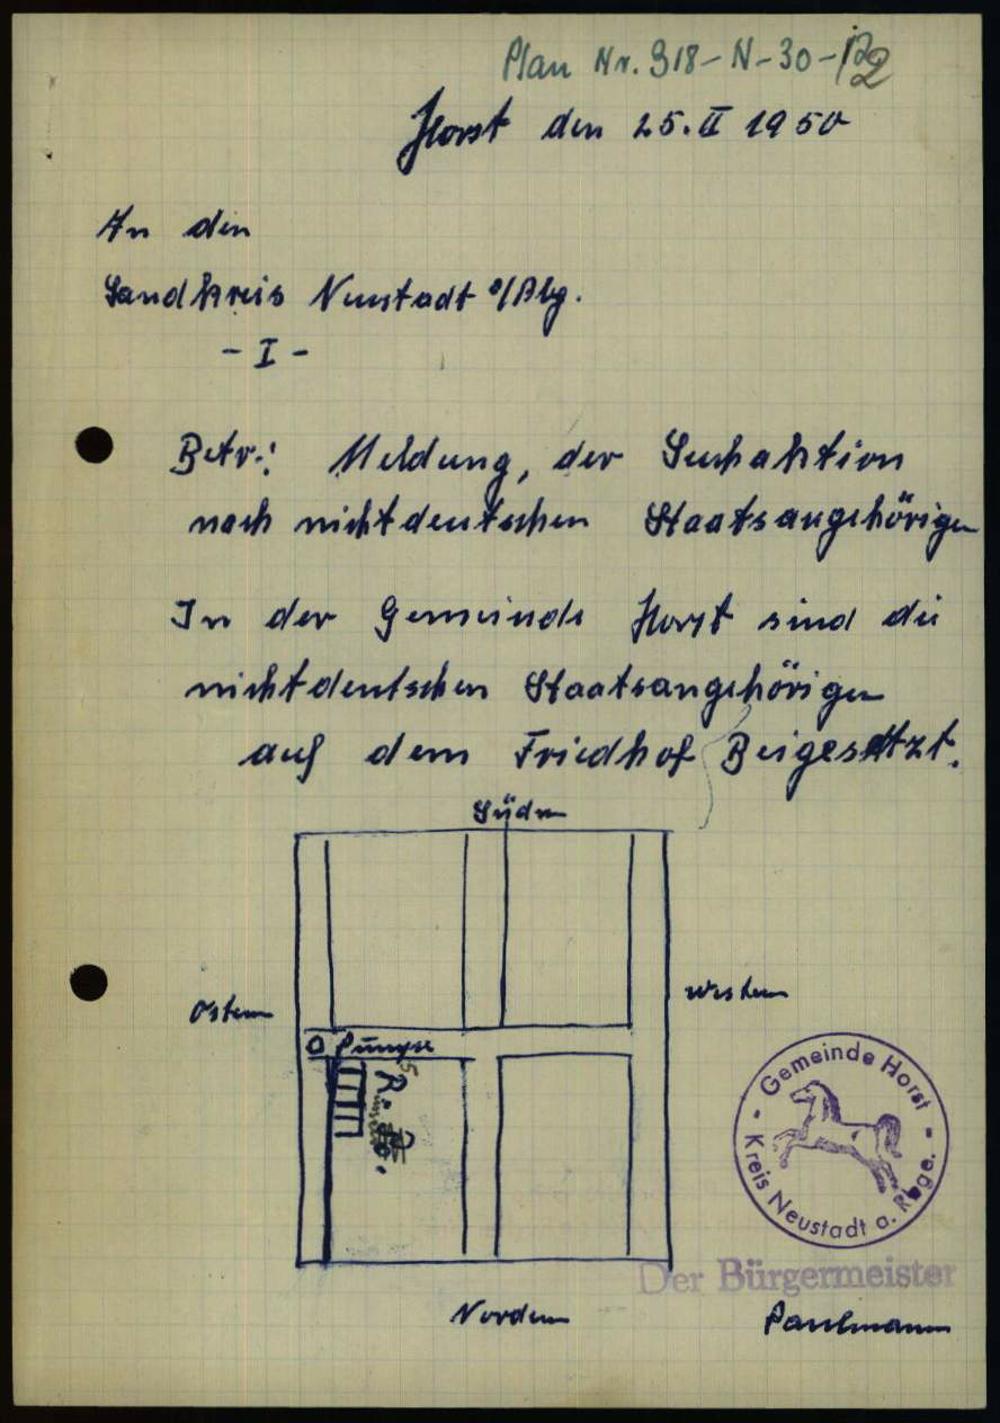 Plan Nr. 318-N-30-
Horst den 25. II 1950
An den
Landkreis Neustadt a/Rbg.
- I -
Betr.: Meldung, der Suchaktion
nach nichtdeutschen Staatsangehörigen
In der Gemeinde Horst sind die
nichtdeutschen Staatsangehörigen
auf dem Friedhof Beigesetzt.
Süden
Osten
Westen
Pumpe
5
R.
Norden
- Gemeinde Horst -
Kreis Neustadt a. Rbge.
Der Bürgermeister